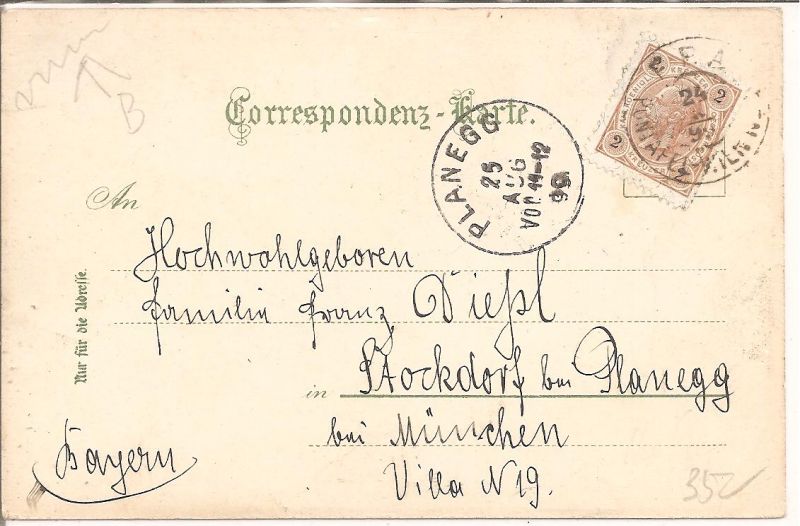 B
Correspondenz-Karte.
2
2
PLANEGG
25
AUG
VOR 11-12
99
An
Hochwohlgeboren
Familie Franz Dießl
in Stockdorf bei Planegg
bei München
Villa N 19.
Bayern
Nur für die Adresse.
352